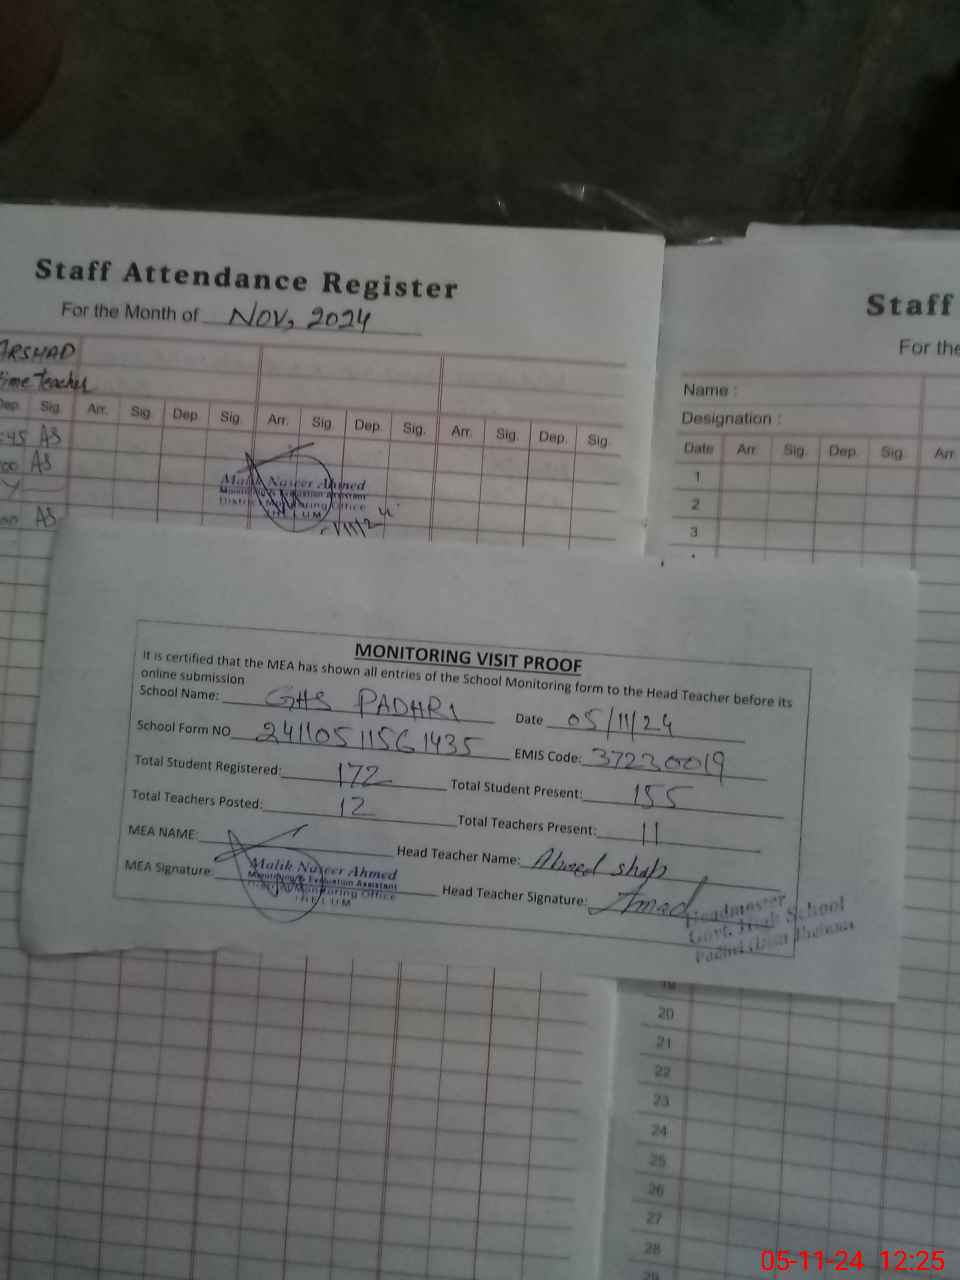 Staff Attendance Register
For the Month of Nov, 2024
ARSHAD
time Teacher
Dep. Sig. Arr. Sig. Dep. Sig. Arr. Sig. Dep. Sig. Arr. Sig. Dep. Sig.
:45 AS
00 AS
AS
Malik Naseer Ahmed
Monitoring & Evaluation Assistant
District Monitoring Office
JHELUM
Staff
For the
Name :
Designation :
Date Arr. Sig. Dep. Sig. Arr
1
2
3
MONITORING VISIT PROOF
It is certified that the MEA has shown all entries of the School Monitoring form to the Head Teacher before its
online submission
School Name: GHS PADHRI Date 05/11/24
School Form NO 24110511561435 EMIS Code: 37230019
Total Student Registered: 172 Total Student Present: 155
Total Teachers Posted: 12 Total Teachers Present: 11
MEA NAME: Head Teacher Name:
MEA Signature: Head Teacher Signature:
Malik Naseer Ahmed
Monitoring & Evaluation Assistant
District Monitoring Office
JHELUM
Headmaster
Govt. High School
19
20
21
22
23
24
25
26
27
28
29
05-11-24 12:25